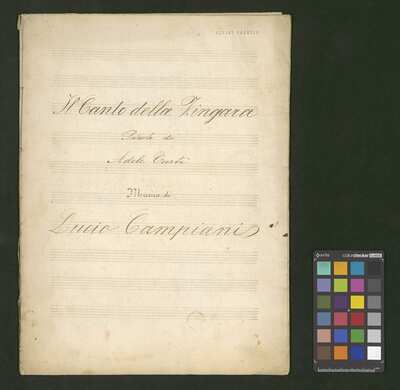 Il Canto della Zingara
Parole di
Adele Curti
Musica di
Lucio Campiani
colorchecker